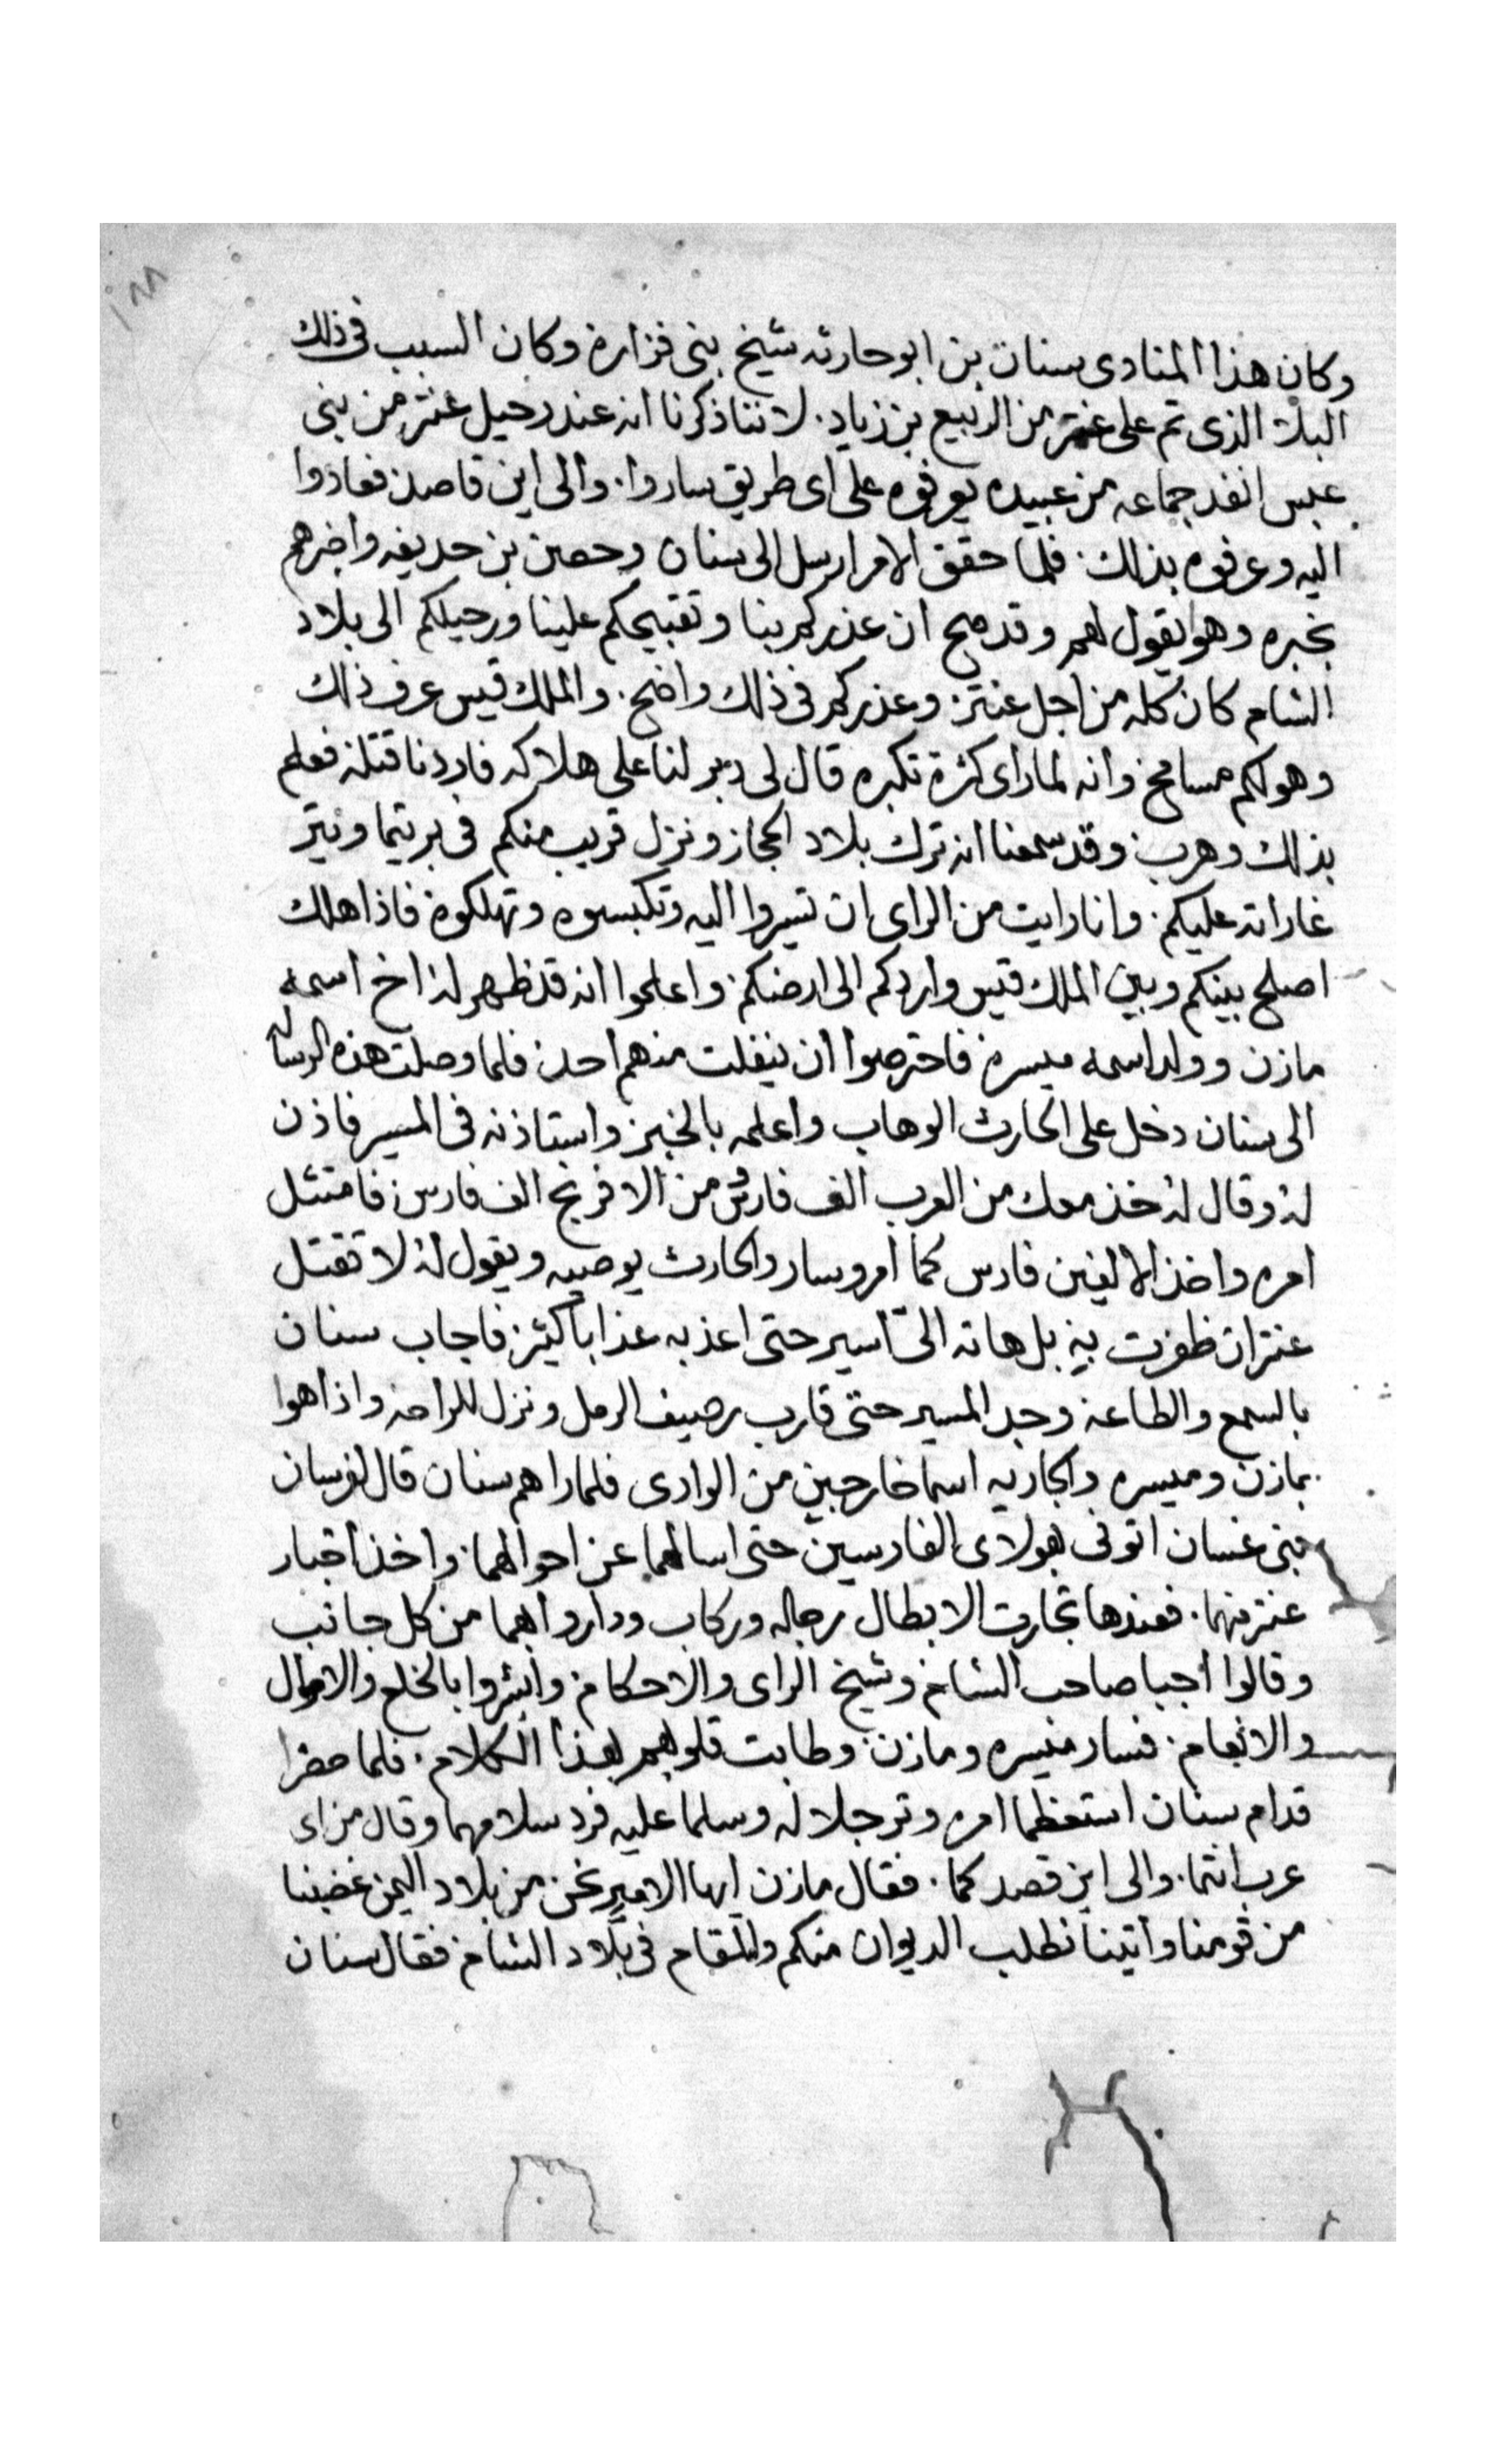 ١٨٨
وكان هذا المنادى سنان بن ابو حارثه شيخ بنى فزاره وكان السبب فى ذلك
البلا الذى تم على عنتر من الربيع بن زياد. لاننا ذكرنا انه عند رحيل عنتر من بنى
عبس انفد جماعه من عبيده يعرفوه على اى طريق ساروا. والى اين قاصد فعادوا
اليه وعرفوه بذلك. فلما حقق الامر ارسل الى سنان وحصن بن حديفه واخبرهم
بخبره وهوا يقول لهم وقد صح ان عذركم بنا وتقبيحكم علينا ورحيلكم الى بلاد
الشام كان كله من اجل عنتر. وعذركم فى ذلك واضح. والملك قيس عرف ذلك
وهو لكم مسامح. وانه لما راى كثرة تكبره قال لى دبر لنا على هلاكه فاردنا قتله فعلم
بذلك وهرب. وقد سمعنا انه ترك بلاد الحجاز ونزل قريب منكم فى بريتما ونيتر
غاراته عليكم. وانا رايت من الراى ان تسيروا اليه وتكبسوه وتهلكوه فاذا هلك
اصلح بينكم وبين الملك قيس واردكم الى ارضكم. واعلموا انه قد ظهر له اخ اسمه
مازن وولد اسمه ميسره فاحترصوا ان ينفلت منهم احد. فلما وصلت هذه الرساله
الى سنان دخل على الحارث الوهاب واعلمه بالخبر. واستاذنه فى المسير فاذن
له وقال له خذ معك من العرب الف فارس ومن الافرنج الف فارس. فامتثل
امره واخذ الالفين فارس كما امر وسار والحارث يوصيه ويقول له لا تقتل
عنتر ان ظفرت به. بل هاته الىّ اسير حتى اعذبه عذاباً كثير. فاجاب سنان
بالسمع والطاعه وجد المسير حتى قارب رصيف الرمل ونزل للراحه واذا هوا
بمازن وميسره والجاريه اسما خارجين من الوادى فلما راهم سنان قال لفرسان
بنى غسان اتونى بهولاى الفارسين حتى اسالهما عن احوالهما. واخذ اخبار
عنتر منهما. فعندها تجارت الابطال رجاله وركاب وداروا بهما من كل جانب
وقالوا اجيبا صاحب الشام وشيخ الراى والاحكام. وابشروا بالخلع والاموال
والانعام. فسار ميسره ومازن. وطابت قلوبهم بهذا الكلام. فلما حضرا
قدام سنان استعظما امره وترجلا له وسلما عليه فرد سلامهما وقال من اى
عرب انتما. والى اين قصدكما. فقال مازن ايها الامير نحن من بلاد اليمن غضبنا
من قومنا واتينا نطلب الديوان منكم والمقام فى بلاد الشام. فقال سنان